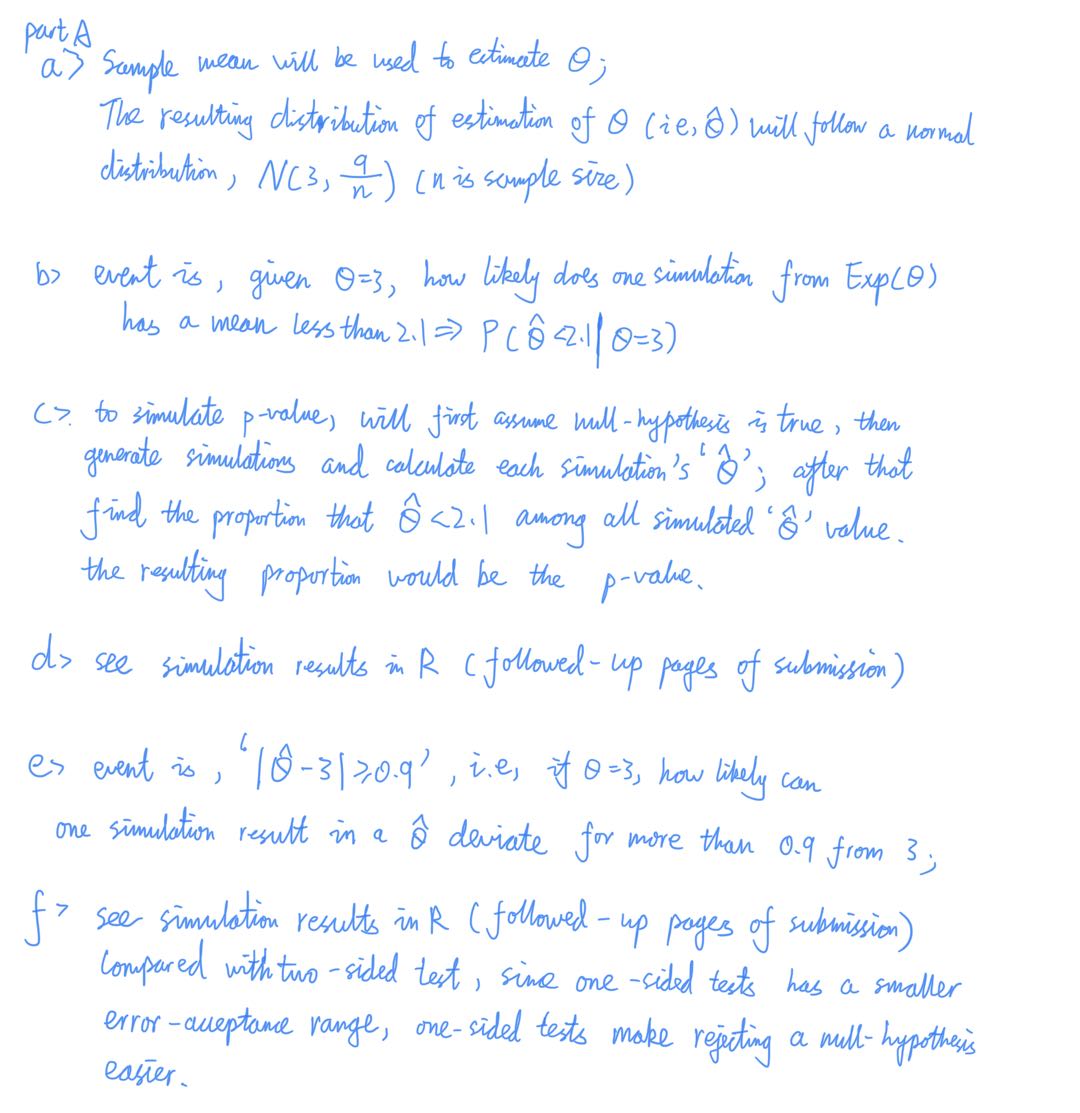 part A
a> Sample mean will be used to estimate θ;
The resulting distribution of estimation of θ (i.e, θ̂) will follow a normal
distribution, N(3, 9/n) (n is sample size)
b> event is, given θ=3, how likely does one simulation from Exp(θ)
has a mean less than 2.1 ⇒ P(θ̂<2.1|θ=3)
c>. to simulate p-value, will first assume null-hypothesis is true, then
generate simulations and calculate each simulation's 'θ̂'; after that
find the proportion that θ̂<2.1 among all simulated 'θ̂' value.
the resulting proportion would be the p-value.
d> see simulation results in R (followed-up pages of submission)
e> event is, '|θ̂-3|≥0.9', i.e, if θ=3, how likely can
one simulation result in a θ̂ deviate for more than 0.9 from 3;
f> see simulation results in R (followed-up pages of submission)
Compared with two-sided test, since one-sided tests has a smaller
error-acceptance range, one-sided tests make rejecting a null-hypothesis
easier.